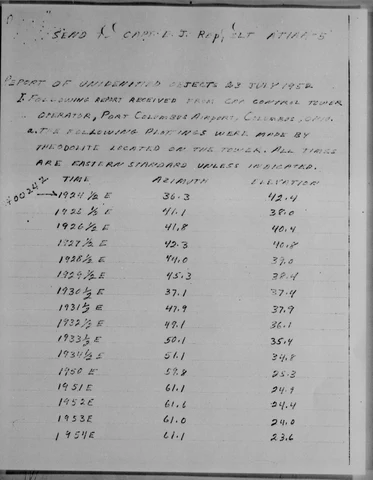 SEND TO CAPT E. J. RUPPELT ATIAA-5
REPORT OF UNIDENTIFIED OBJECTS 23 JULY 1952
1. FOLLOWING REPORT RECEIVED FROM CAA CONTROL TOWER
OPERATOR, PORT COLUMBUS AIRPORT, COLUMBUS, OHIO.
2. THE FOLLOWING PLOTTINGS WERE MADE BY
THEODOLITE LOCATED ON THE TOWER. ALL TIMES
ARE EASTERN STANDARD UNLESS INDICATED.
TIME AZIMUTH ELEVATION
0024Z
1924 1/2 E 36.3 42.4
1925 1/2 E 41.1 38.0
1926 1/2 E 41.8 40.4
1927 1/2 E 42.3 40.8
1928 1/2 E 44.0 39.0
1929 1/2 E 45.3 38.4
1930 1/2 E 37.1 37.4
1931 1/2 E 47.9 37.9
1932 1/2 E 49.1 36.1
1933 1/2 E 50.1 35.4
1934 1/2 E 51.1 34.8
1950 E 59.8 25.3
1951E 61.1 24.9
1952E 61.6 24.4
1953E 61.0 24.0
1954E 61.1 23.6